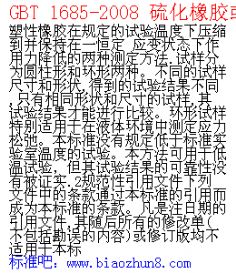 GBT 1685-2008 硫化橡胶或
塑性橡胶在规定的试验温度下压缩
到并保持在一恒定 应变状态下作
用力降低的两种测定方法.试样分
为圆柱形和环形两种。不同的试样
尺寸和形状,得到的试验结果不同
,只有相同形状和尺寸的试样,其
试验结果才能进行比较。环形试样
特别适用于在液体环境中测定应力
松弛。本标准没有规定低于标准实
验室温度的试验。本方法可用于低
温试验,但其试验结果的可靠性没
有被证实.2规范性引用文件下列
文件中的条款通过本标准的引用而
成为本标准的条款。凡是注日期的
引用文件,其随后所有的修改单(
不包括勘误的内容)或修订版均不
适用于本标
标准吧:www.biaozhun8.com